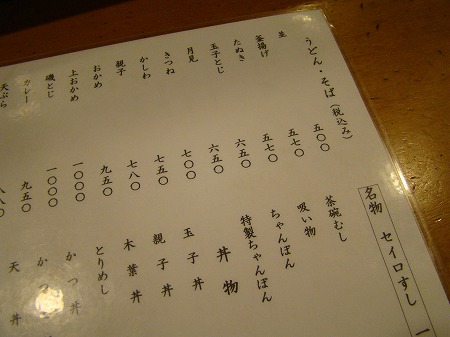 名物 セイロすし 一
うどん・そば（税込み）
並 五〇〇
釜揚げ 五七〇
たぬき 五七〇
玉子とじ 六五〇
月見 六五〇
きつね 七〇〇
かしわ 七五〇
親子 七八〇
おかめ 九五〇
上おかめ 一〇〇〇
磯とじ 一〇〇〇
カレー 九五〇
天ぷら
茶碗むし
吸い物
ちゃんぽん
特製ちゃんぽん
丼物
玉子丼
親子丼
木葉丼
とりめし
かつ丼
かつ
天丼